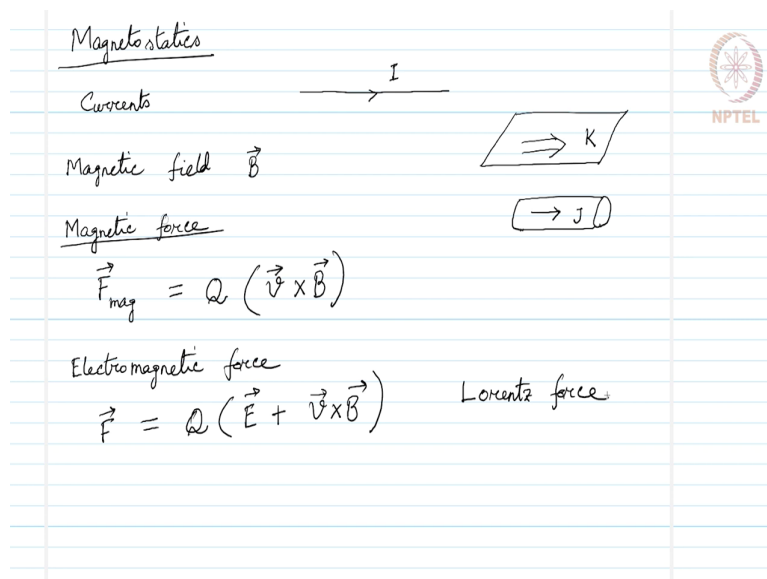 Magnetostatics
I
Currents
K
Magnetic field \vec{B}
J
Magnetic force
\vec{F}_{mag} = Q (\vec{v} × \vec{B})
Electromagnetic force
\vec{F} = Q (\vec{E} + \vec{v} × \vec{B})
Lorentz force
NPTEL